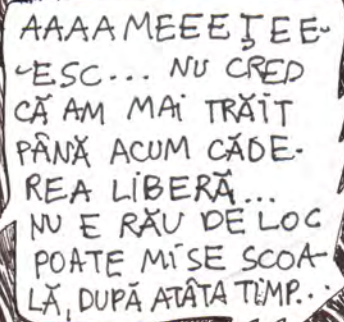 AAAAMEEEŢEE-
-ESC... NU CRED
CĂ AM MAI TRĂIT
PÂNĂ ACUM CĂDE-
REA LIBERĂ...
NU E RĂU DE LOC
POATE MI SE SCOA-
LĂ, DUPĂ ATÂTA TIMP...